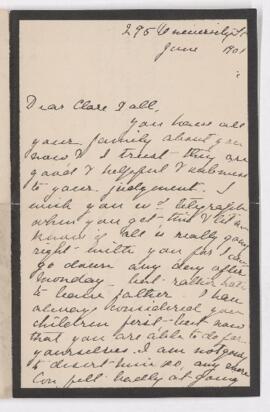 295 University St
June 1901
Dear Clare & all.
You have all
your family about you
now & I trust they are
good & helpful &
to your judgment. I
wish you w<sup>d</sup> telegraph
when you get this & let me
know if all is really going
right with you for I can
go down any day after
Monday – but rather hate
to leave father. I have
always considered you
children first – but now
that you are able to do for
yourselves I am not going
to desert him so, any more
Con fell badly at going